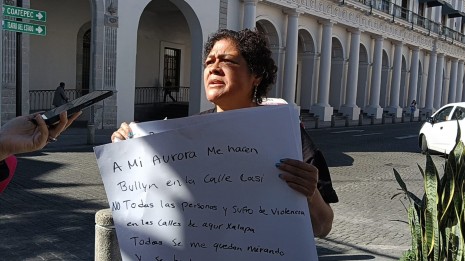 COATEPEC
A Mi Aurora Me hacen
Bullyn en la Calle Casi
NO Todas las personas y Sufro de Violencia
en las Calles de aquí Xalapa
Todas Se me quedan mirando